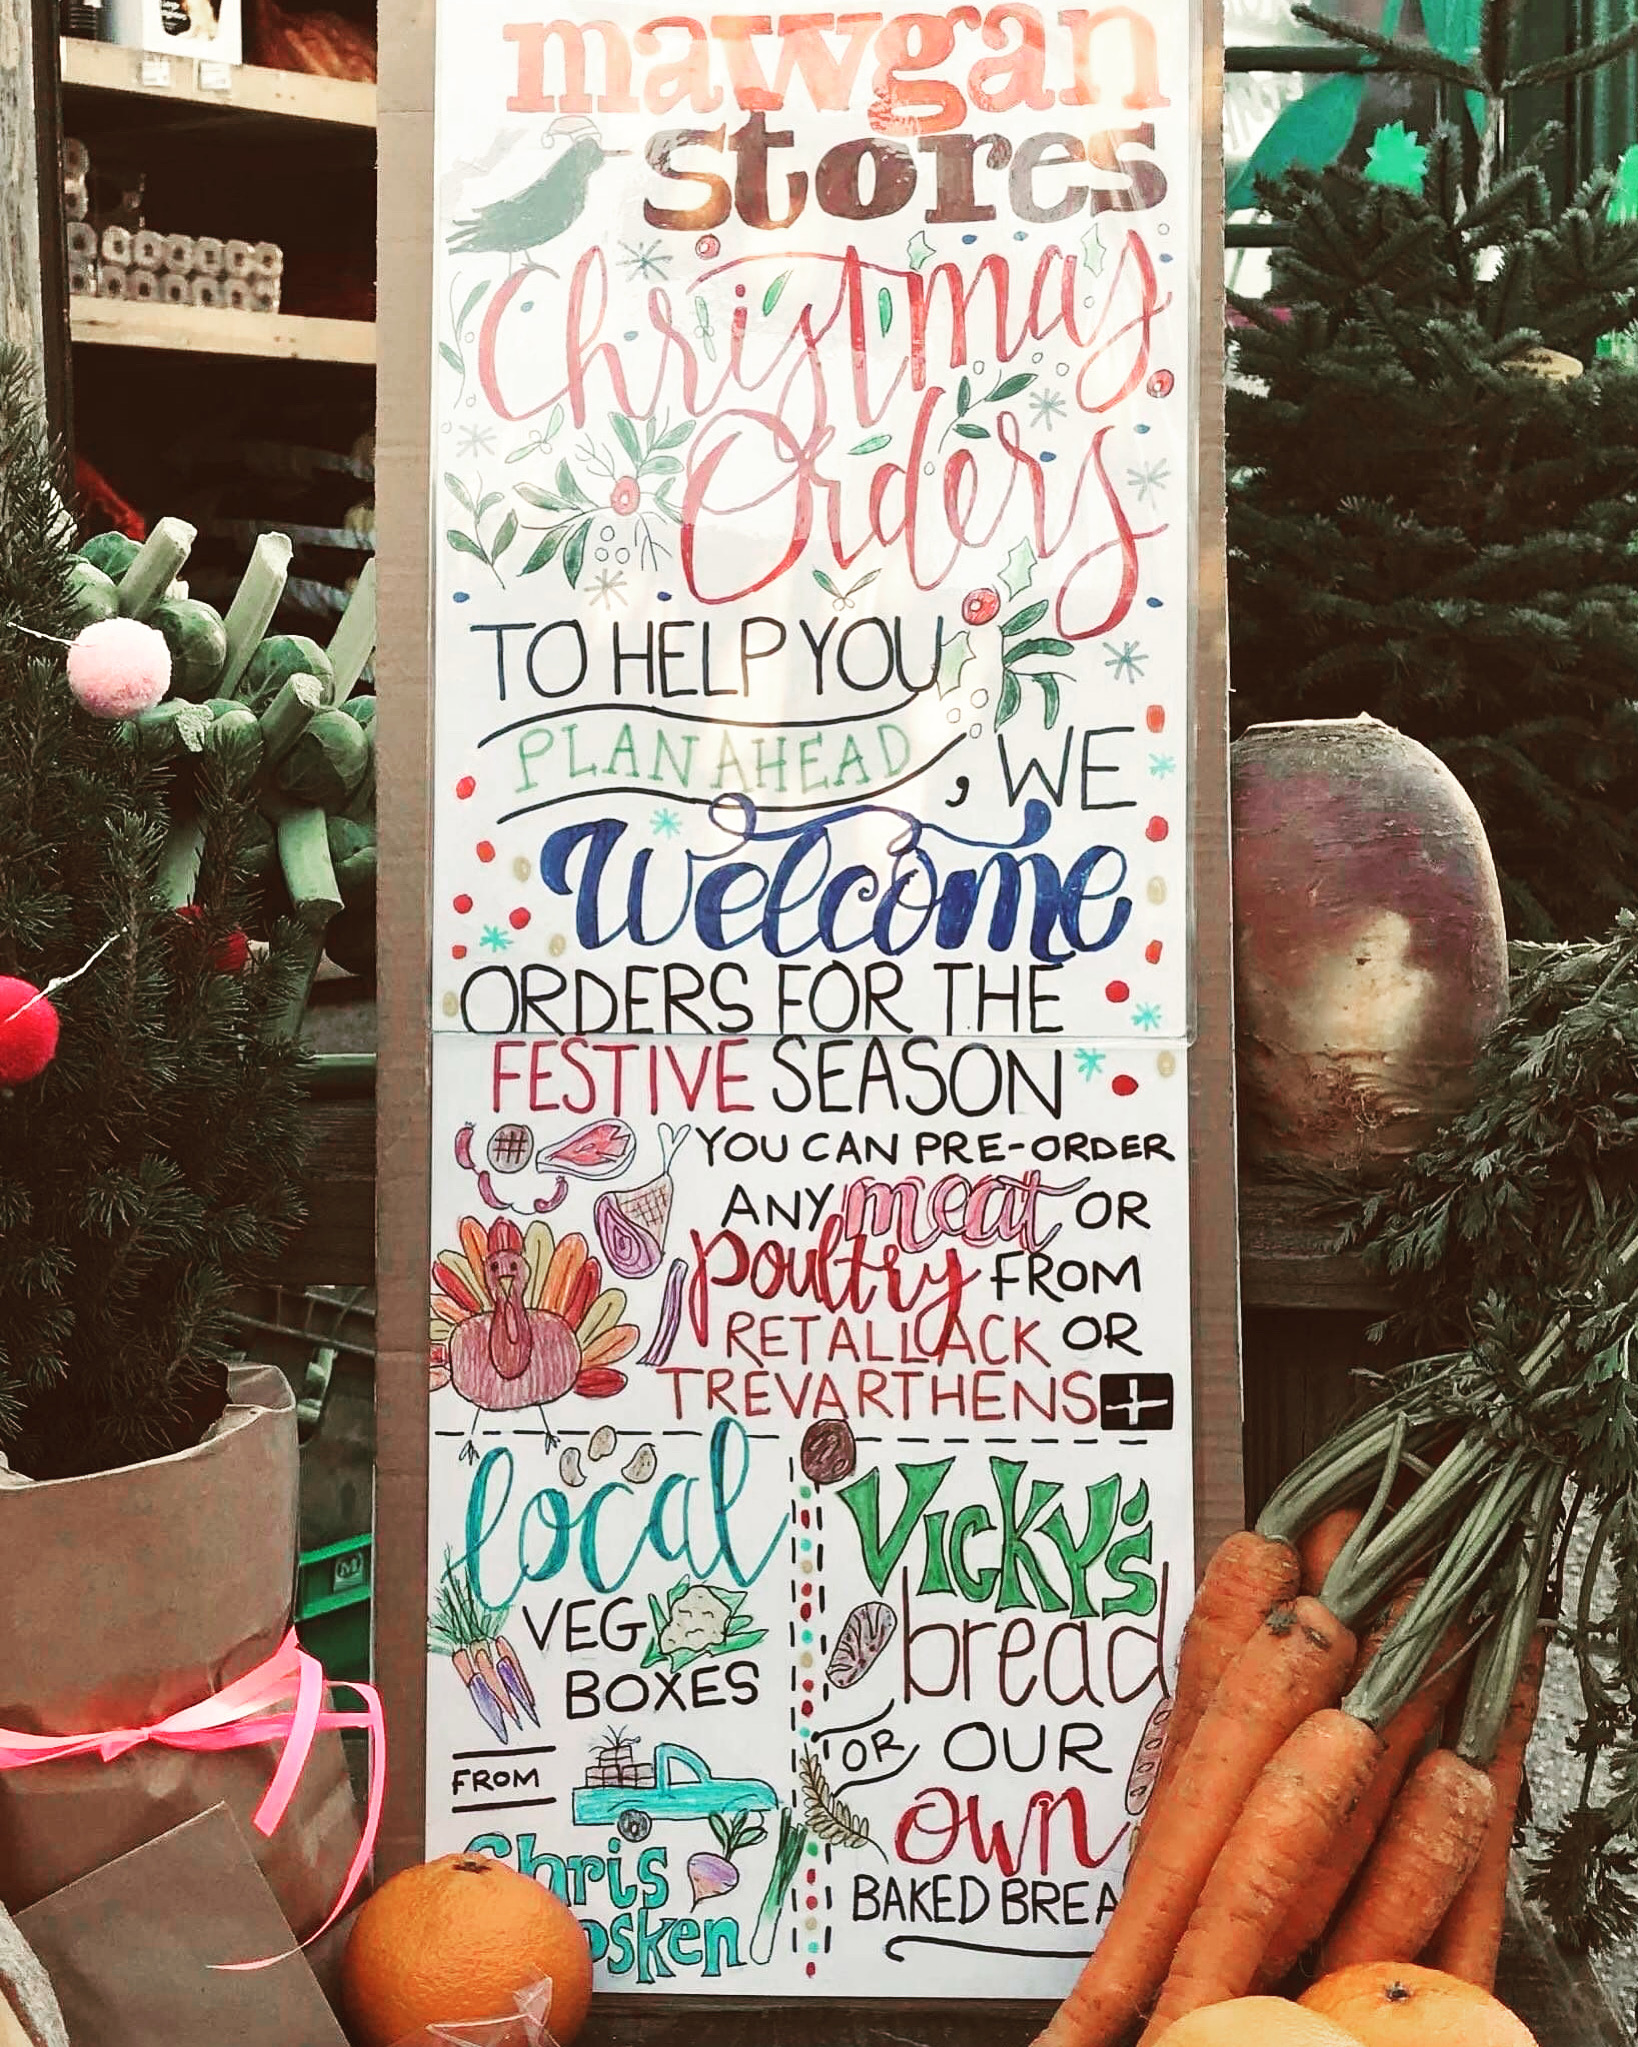 mawgan
stores
Christmas
Orders
TO HELP YOU
PLAN AHEAD, WE
Welcome
ORDERS FOR THE
FESTIVE SEASON
YOU CAN PRE-ORDER
ANY meat OR
poultry FROM
RETALLACK OR
TREVARTHENS +
local
VEG
BOXES
FROM
Chris
osken
VICKY'S
bread
OR OUR
own
BAKED BREA